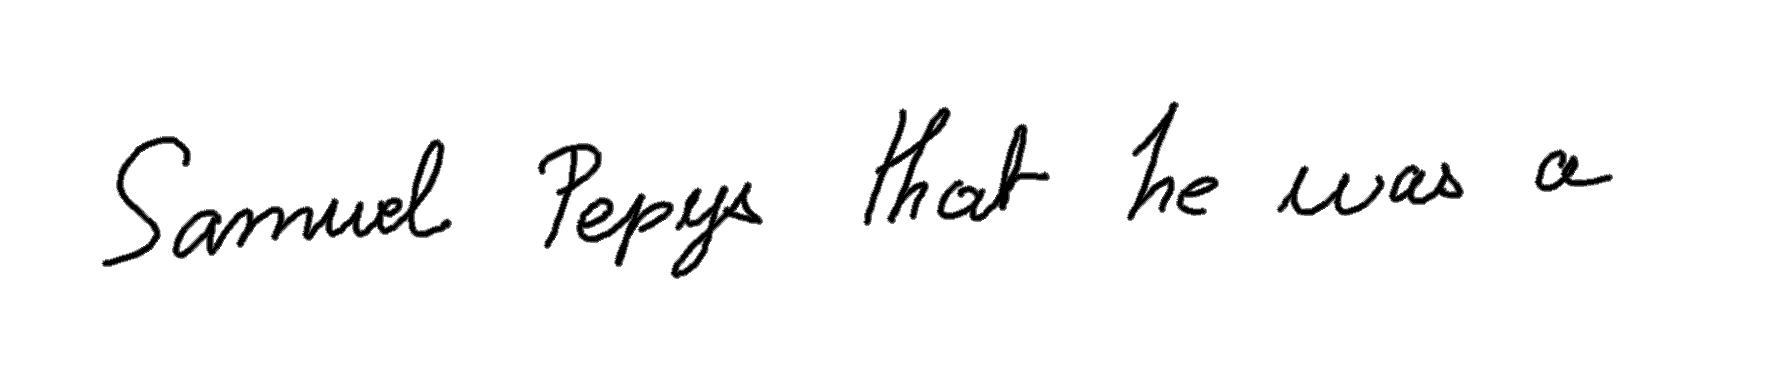 Samuel Pepys that he was a